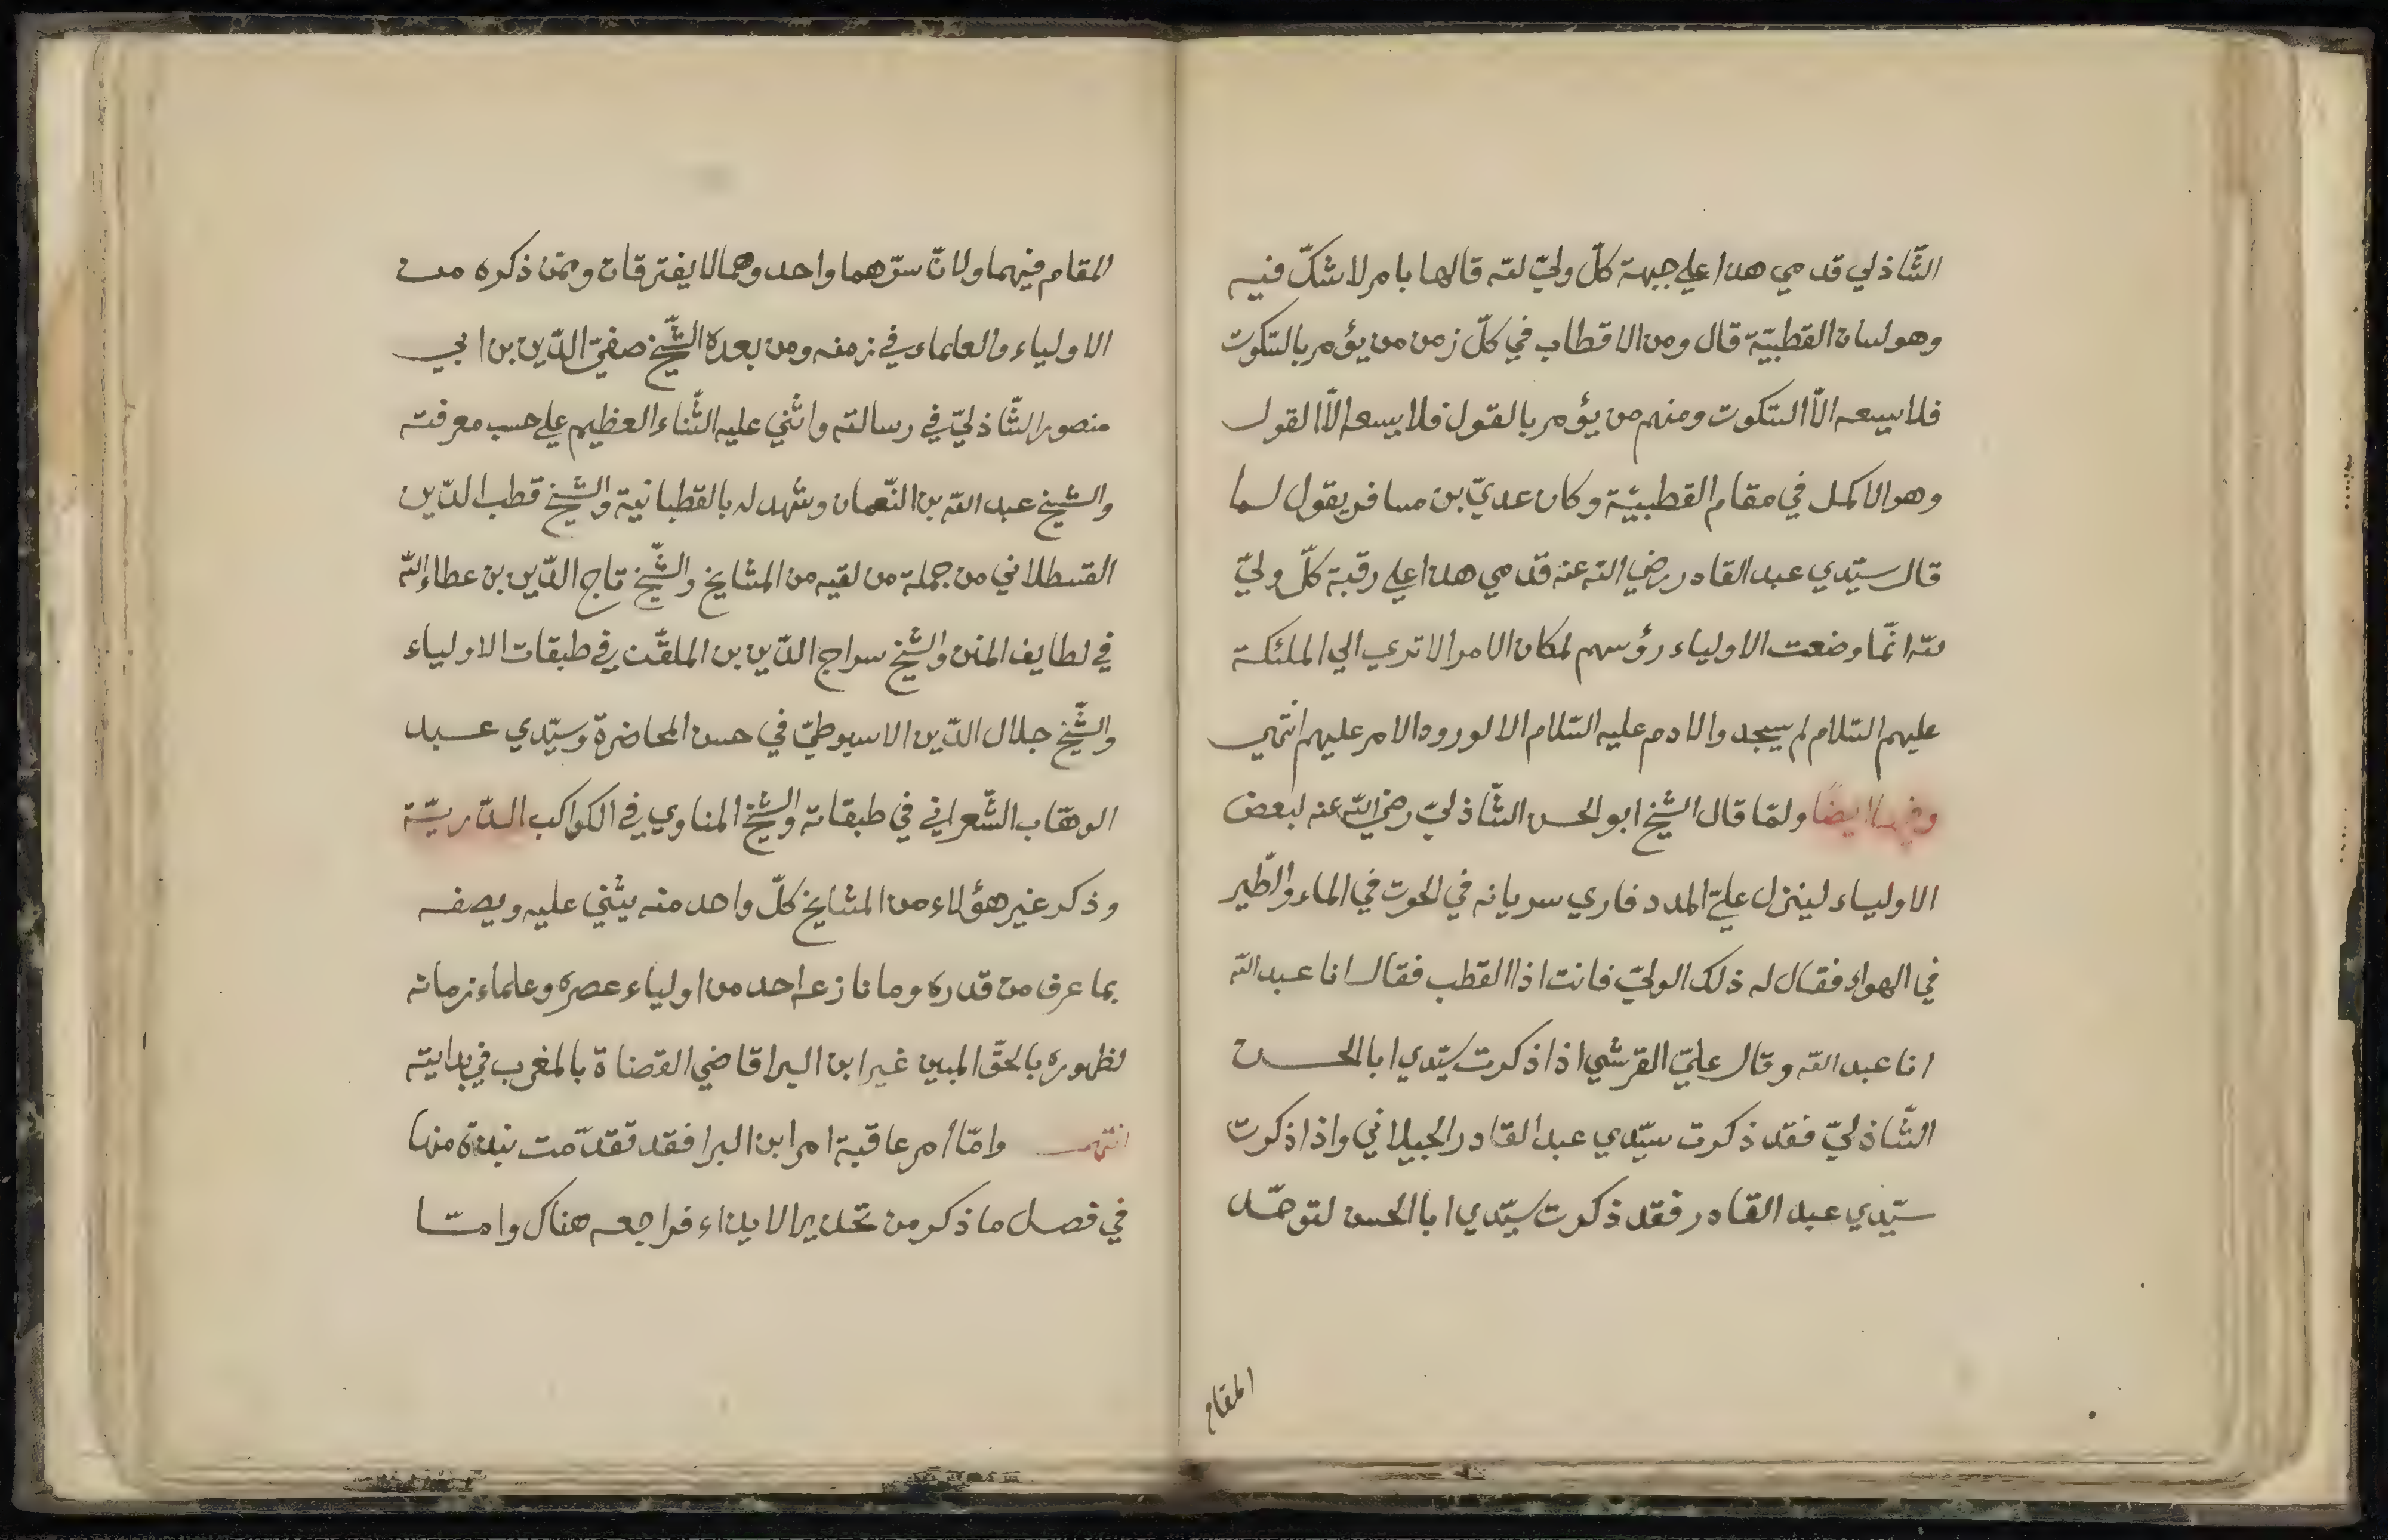 الشّاذلي قدمي هذا علي جبهة كلّ وليّ لله قالها بامر لا شكّ فيه
وهو لسان القطبيّة قال ومن الاقطاب في كلّ زمن من يؤمر بالسّكوت
فلا يسعه الاّ السّكوت ومنهم من يؤمر بالقول فلا يسعه الاّ القول
وهو الاكمل في مقام القطبيّة وكان عديّ بن مسافر يقول لما
قال سيّدي عبد القادر رضي الله عنه قدمي هذا علي رقبة كلّ وليّ
لله انّما وضعت الاولياء رؤسهم لمكان الامر الا تري الي الملئكة
عليهم السّلام لم يسجدوا لادم عليه السّلام الا لورود الامر عليهم انتهي
وفيها ايضًا ولمّا قال الشّيخ ابو الحسن الشّاذليّ رضي الله عنه لبعض
الاولياء لينزل عليّ المدد فاري سريانه في الحوت في الماء والطّير
في الهواء فقال له ذلك الوليّ فانت اذا القطب فقال انا عبد الله
انا عبد الله وقال عليّ القرشي اذا ذكرت سيّدي ابا الحسن
الشّاذليّ فقد ذكرت سيّدي عبد القادر الجيلاني واذا ذكرت
سيّدي عبد القادر فقد ذكرت سيّدي ابا الحسن لتوحّد
المقام
المقام فيهما ولانّ سرّهما واحد وهما لا يفترقان وممّن ذكره من
الاولياء والعلماء في زمنه ومن بعده الشّيخ صفيّ الدّين بن ابي
منصور الشّاذليّ في رسالته واثني عليه الثّناء العظيم علي حسب معرفته
والشّيخ عبد الله بن النّعمان وشهد له بالقطبانية والشّيخ قطب الدّين
القسطلاني من جملة من لقيه من المشايخ والشّيخ تاج الدّين بن عطاء الله
في لطايف المنن والشّيخ سراج الدّين بن الملقّن في طبقات الاولياء
والشّيخ جلال الدّين الاسيوطيّ في حسن المحاضرة وسيّدي عبد
الوهّاب الشّعراني في طبقاته والشّيخ المناوي في الكواكب الدّريّة
وذكر غير هؤلاء من المشايخ كلّ واحد منه يثني عليه ويصفه
بما عرف من قدره وما نازعه احد من اولياء عصره وعلماء زمانه
لظهوره بالحقّ المبين غير ابن البرا قاضي القضاة بالمغرب في بدايته
انتهي وامّا امر عاقبة امر ابن البرا فقد تقدّمت نبذة منها
في فصل ما ذكر من تحذير الايذاء فراجعه هناك وامّا